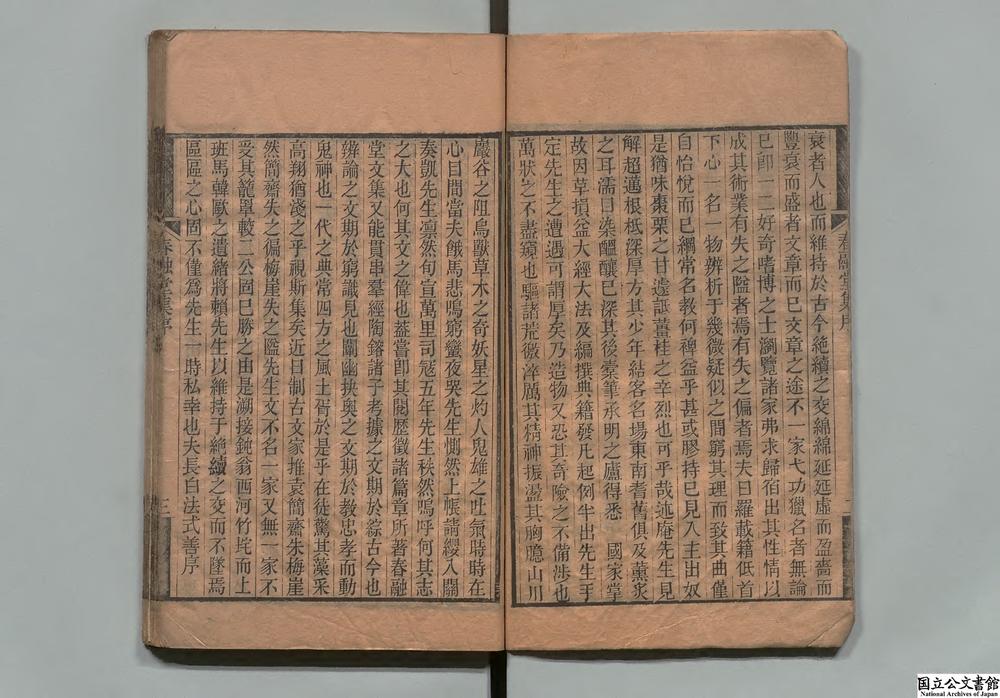 衰者人也而維持於古今絶續之交綿綿延延虛而盈嗇而
豐衰而盛者文章而已文章之途不一家弋功獵名者無論
已卽一二好奇嗜博之士瀏覽諸家弗求歸宿出其性情以
成其術業有失之隘者焉有失之偏者焉夫日羅載籍低首
下心一名一物辨析于幾微疑似之間窮其理而致其曲僅
自怡悅而已綱常名教何裨益乎甚或膠持已見入主出奴
是猶味棗栗之甘遽詆薑桂之辛烈也可乎哉述庵先生見
解超邁根柢深厚方其少年結客名場東南耆舊俱及薰炙
之耳濡目染醞釀已深其後橐筆承明之廬得悉 國家掌
故因草損益大經大法及編撰典籍發凡起例半出先生手
定先生之遭遇可謂厚矣乃造物又恐其奇險之不備涉也
萬狀之不盡窺也驅諸荒徼淬厲其精神振盪其胸臆山川
春融堂集序
二
巖谷之阻鳥獸草木之奇妖星之灼人鬼雄之吐氣時時在
心目間當夫餓馬悲鳴窮蠻夜哭先生慟然上帳請纓入關
奏凱先生凛然旬宣萬里司寇五年先生秩然嗚呼何其志
之大也何其文之偉也葢嘗卽其閱歷徵諸篇章所著春融
堂文集又能貫串羣經陶鎔諸子考據之文期於綜古今也
辨論之文期於窮識見也闡幽抉奥之文期於教忠孝而動
鬼神也一代之典常四方之風土胥於是乎在徒驚其藻采
高翔猶淺之乎視斯集矣近日制古文家推袁簡齋朱梅崖
然簡齋失之偏梅崖失之隘先生文不名一家又無一家不
受其籠罩較二公固已勝之由是溯接鈍翁西河竹垞而上
班馬韓歐之遺緒將賴先生以維持于絶續之交而不墜焉
區區之心固不僅爲先生一時私幸也夫長白法式善序
春融堂集序
三
国立公文書館
National Archives of Japan